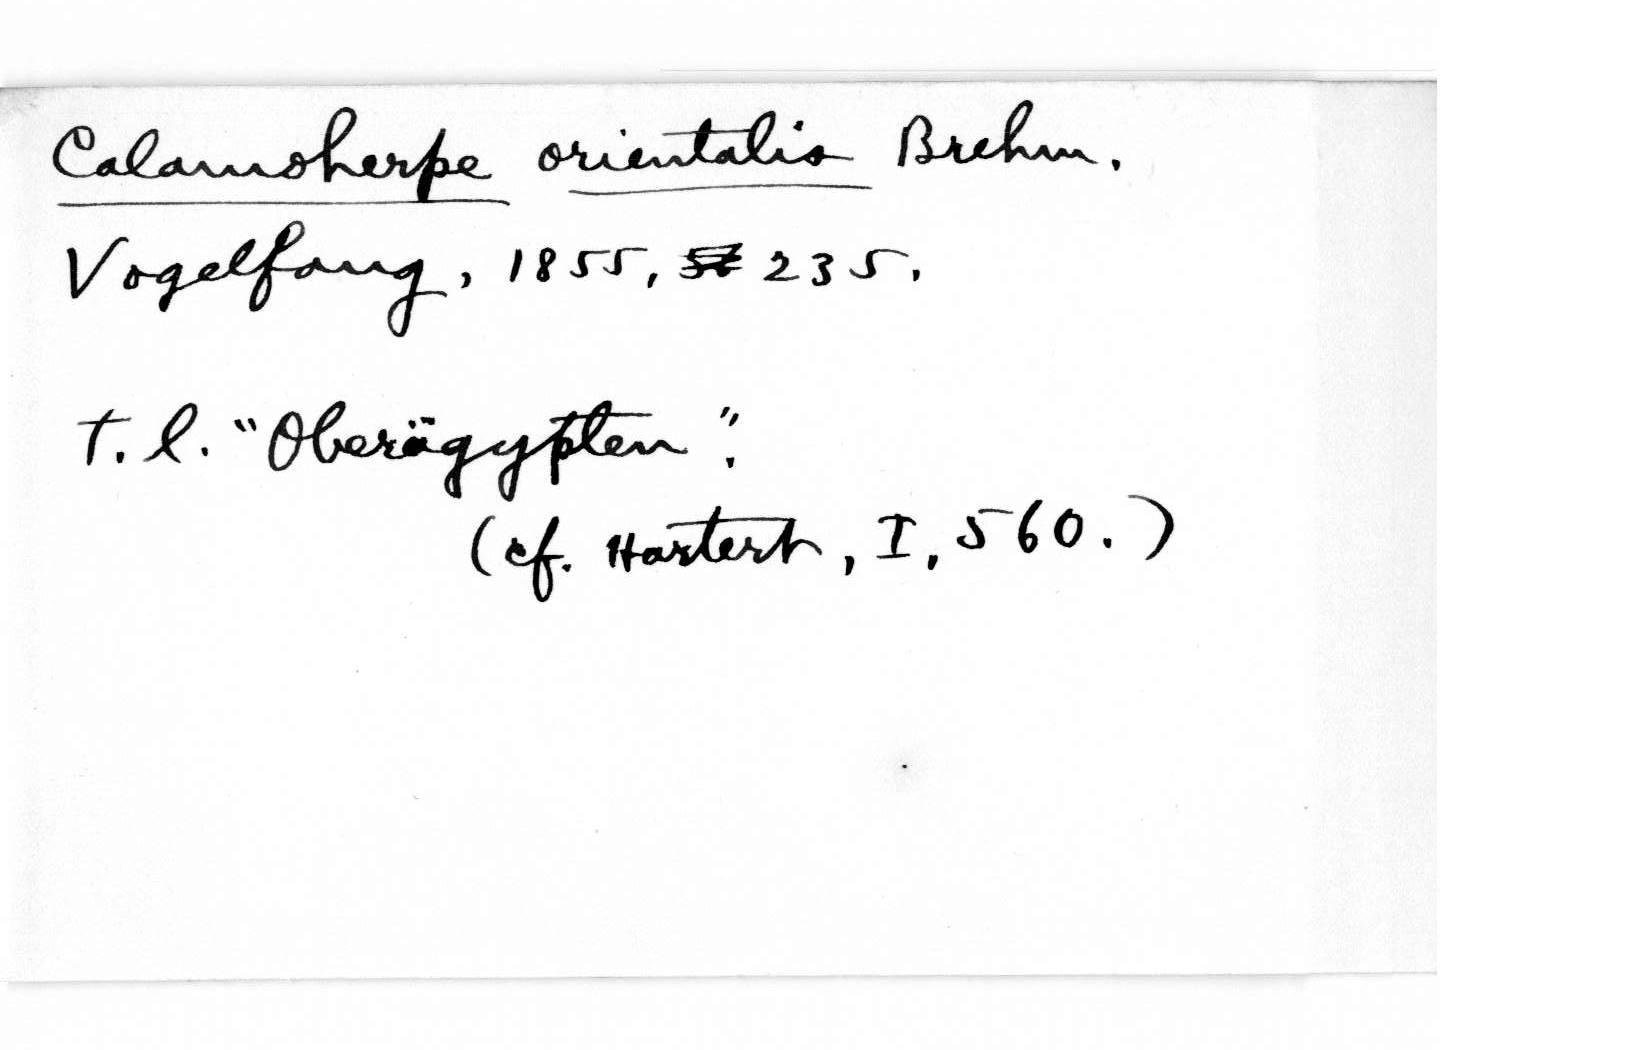 Calamoherpe orientalis Brehm.
Vogelfang, 1855, 235.
T. l. "Oberägypten".
(cf. Hartert, I, 560.)